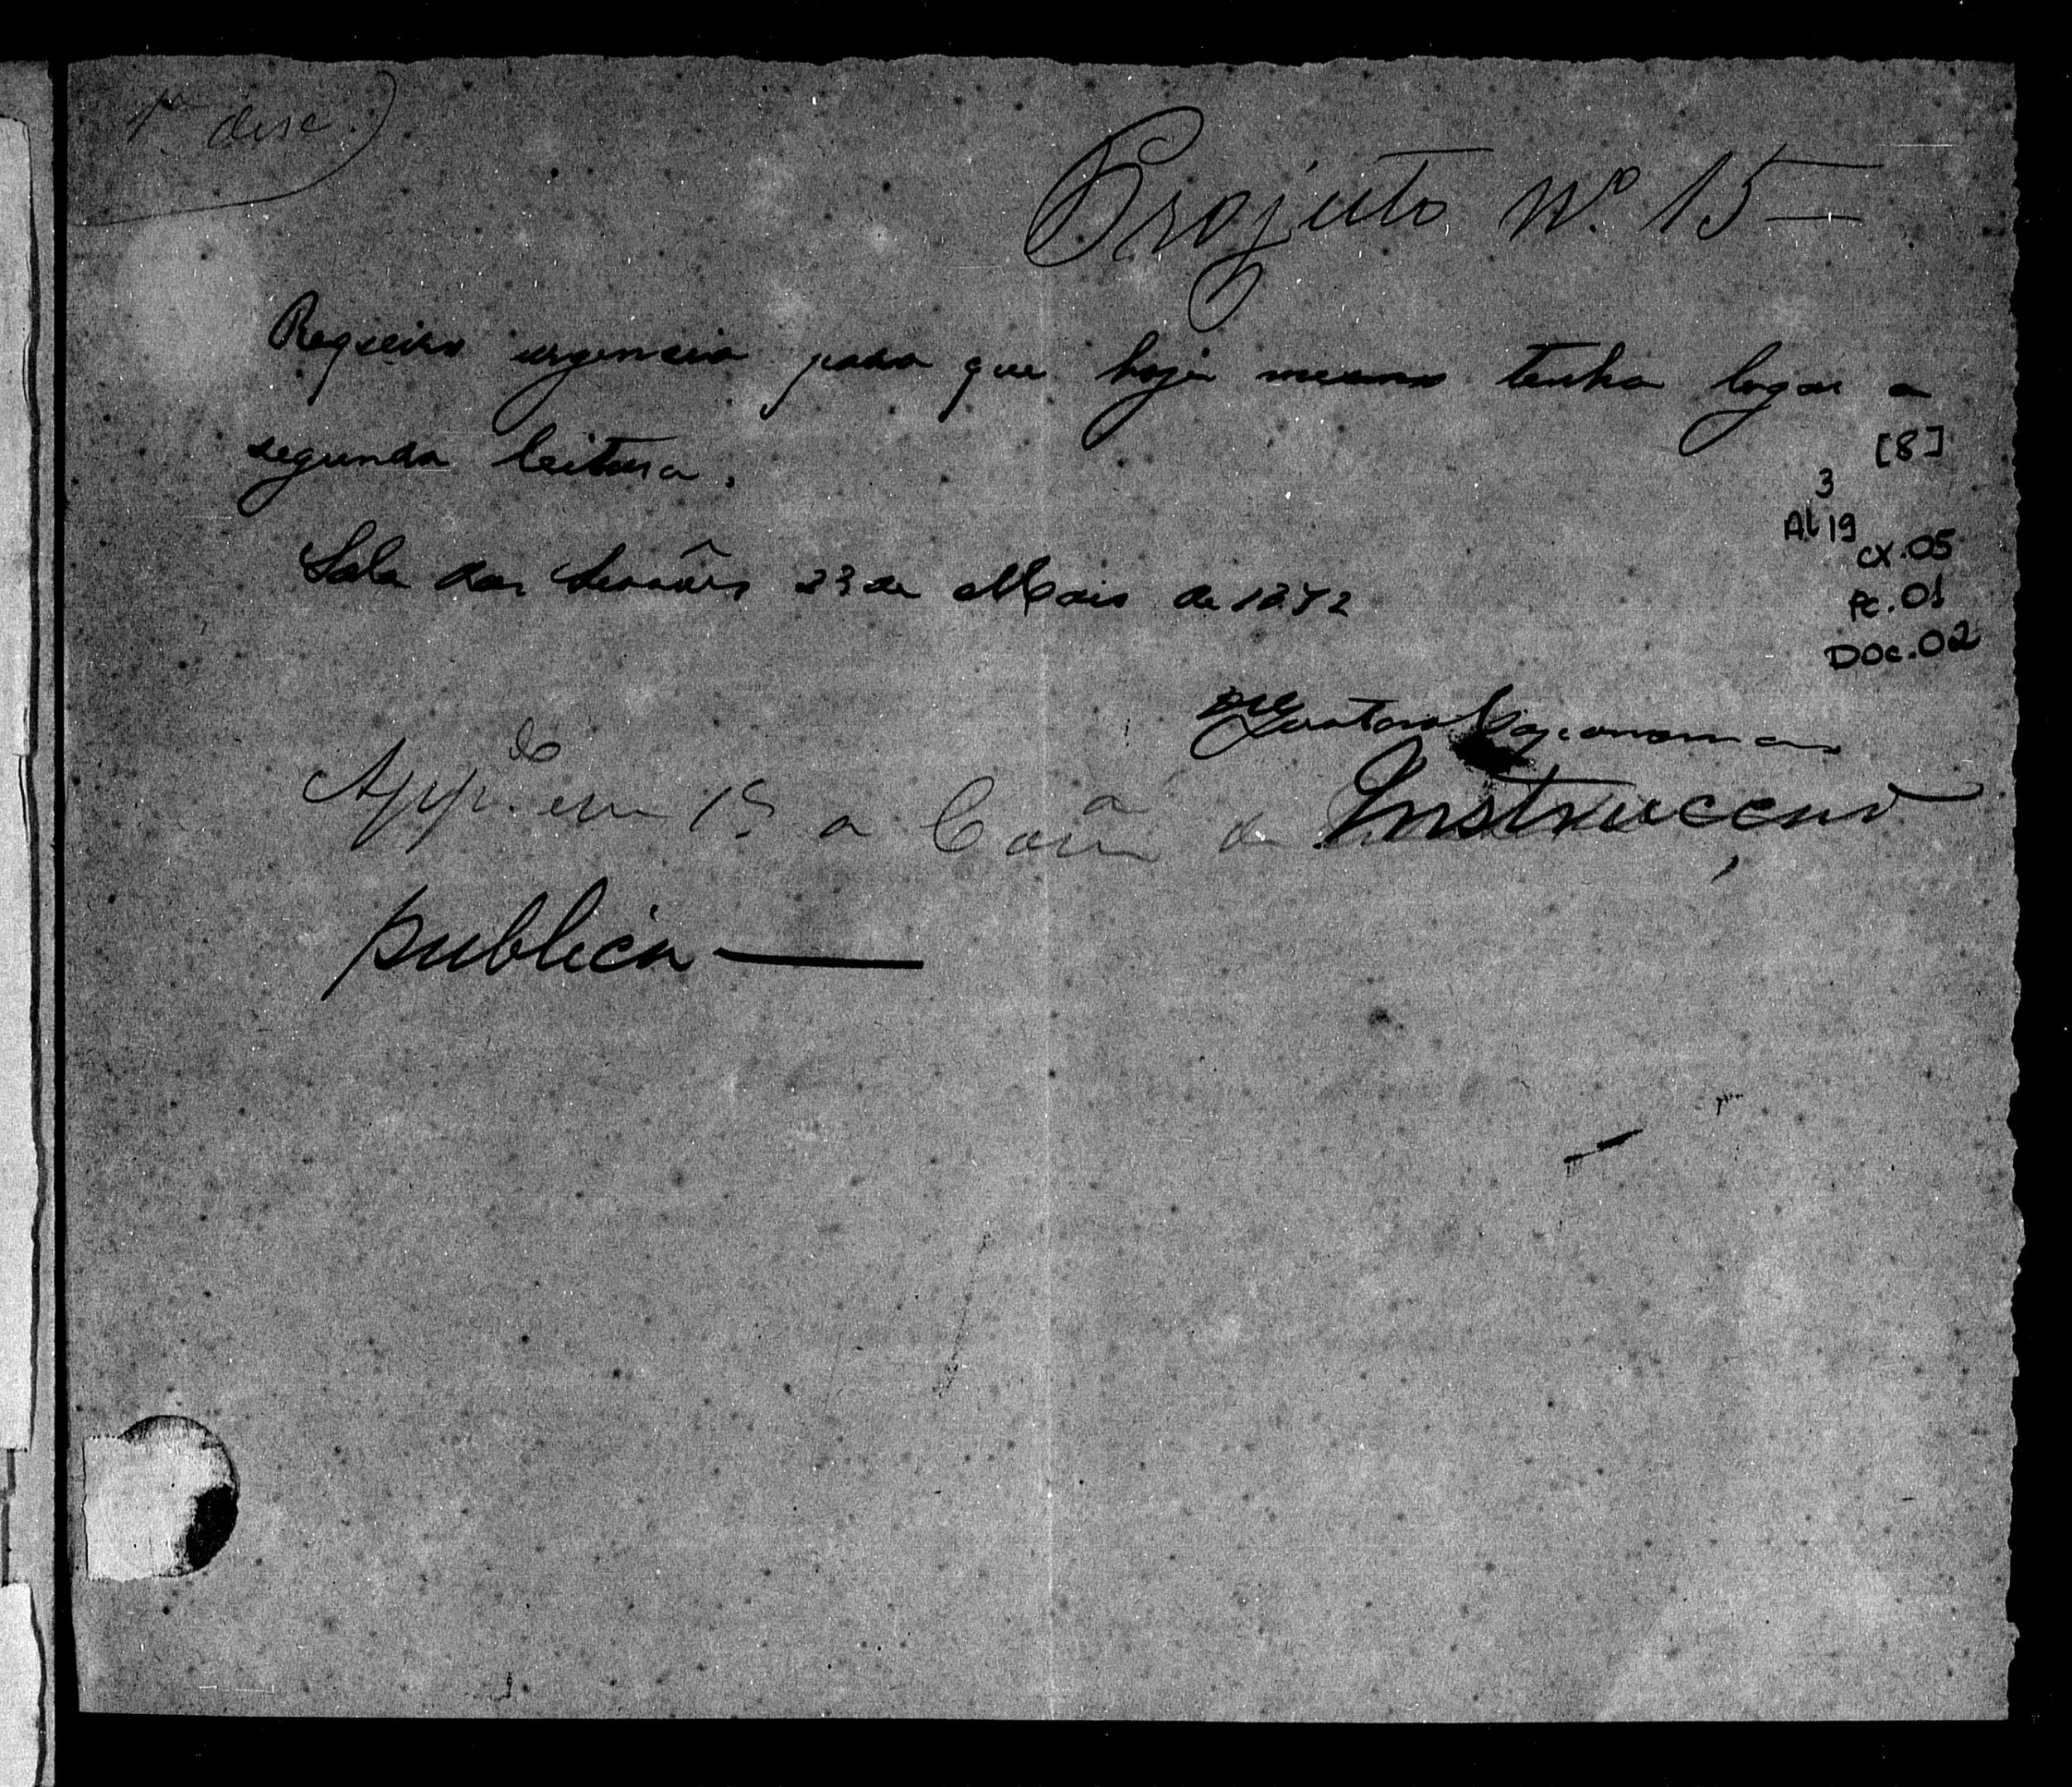 1ª disc.)
Projecto Nº 15 —
Requeiro urgencia para que hoje mesmo tenha logar a
segunda leitura.
[8]
3
AL 19
cx. 05
Pc. 01
Doc. 02
Sala das Sessões 23 de Maio de 1872
App.do em 1ª a Com.ª de Instrucção
publica —